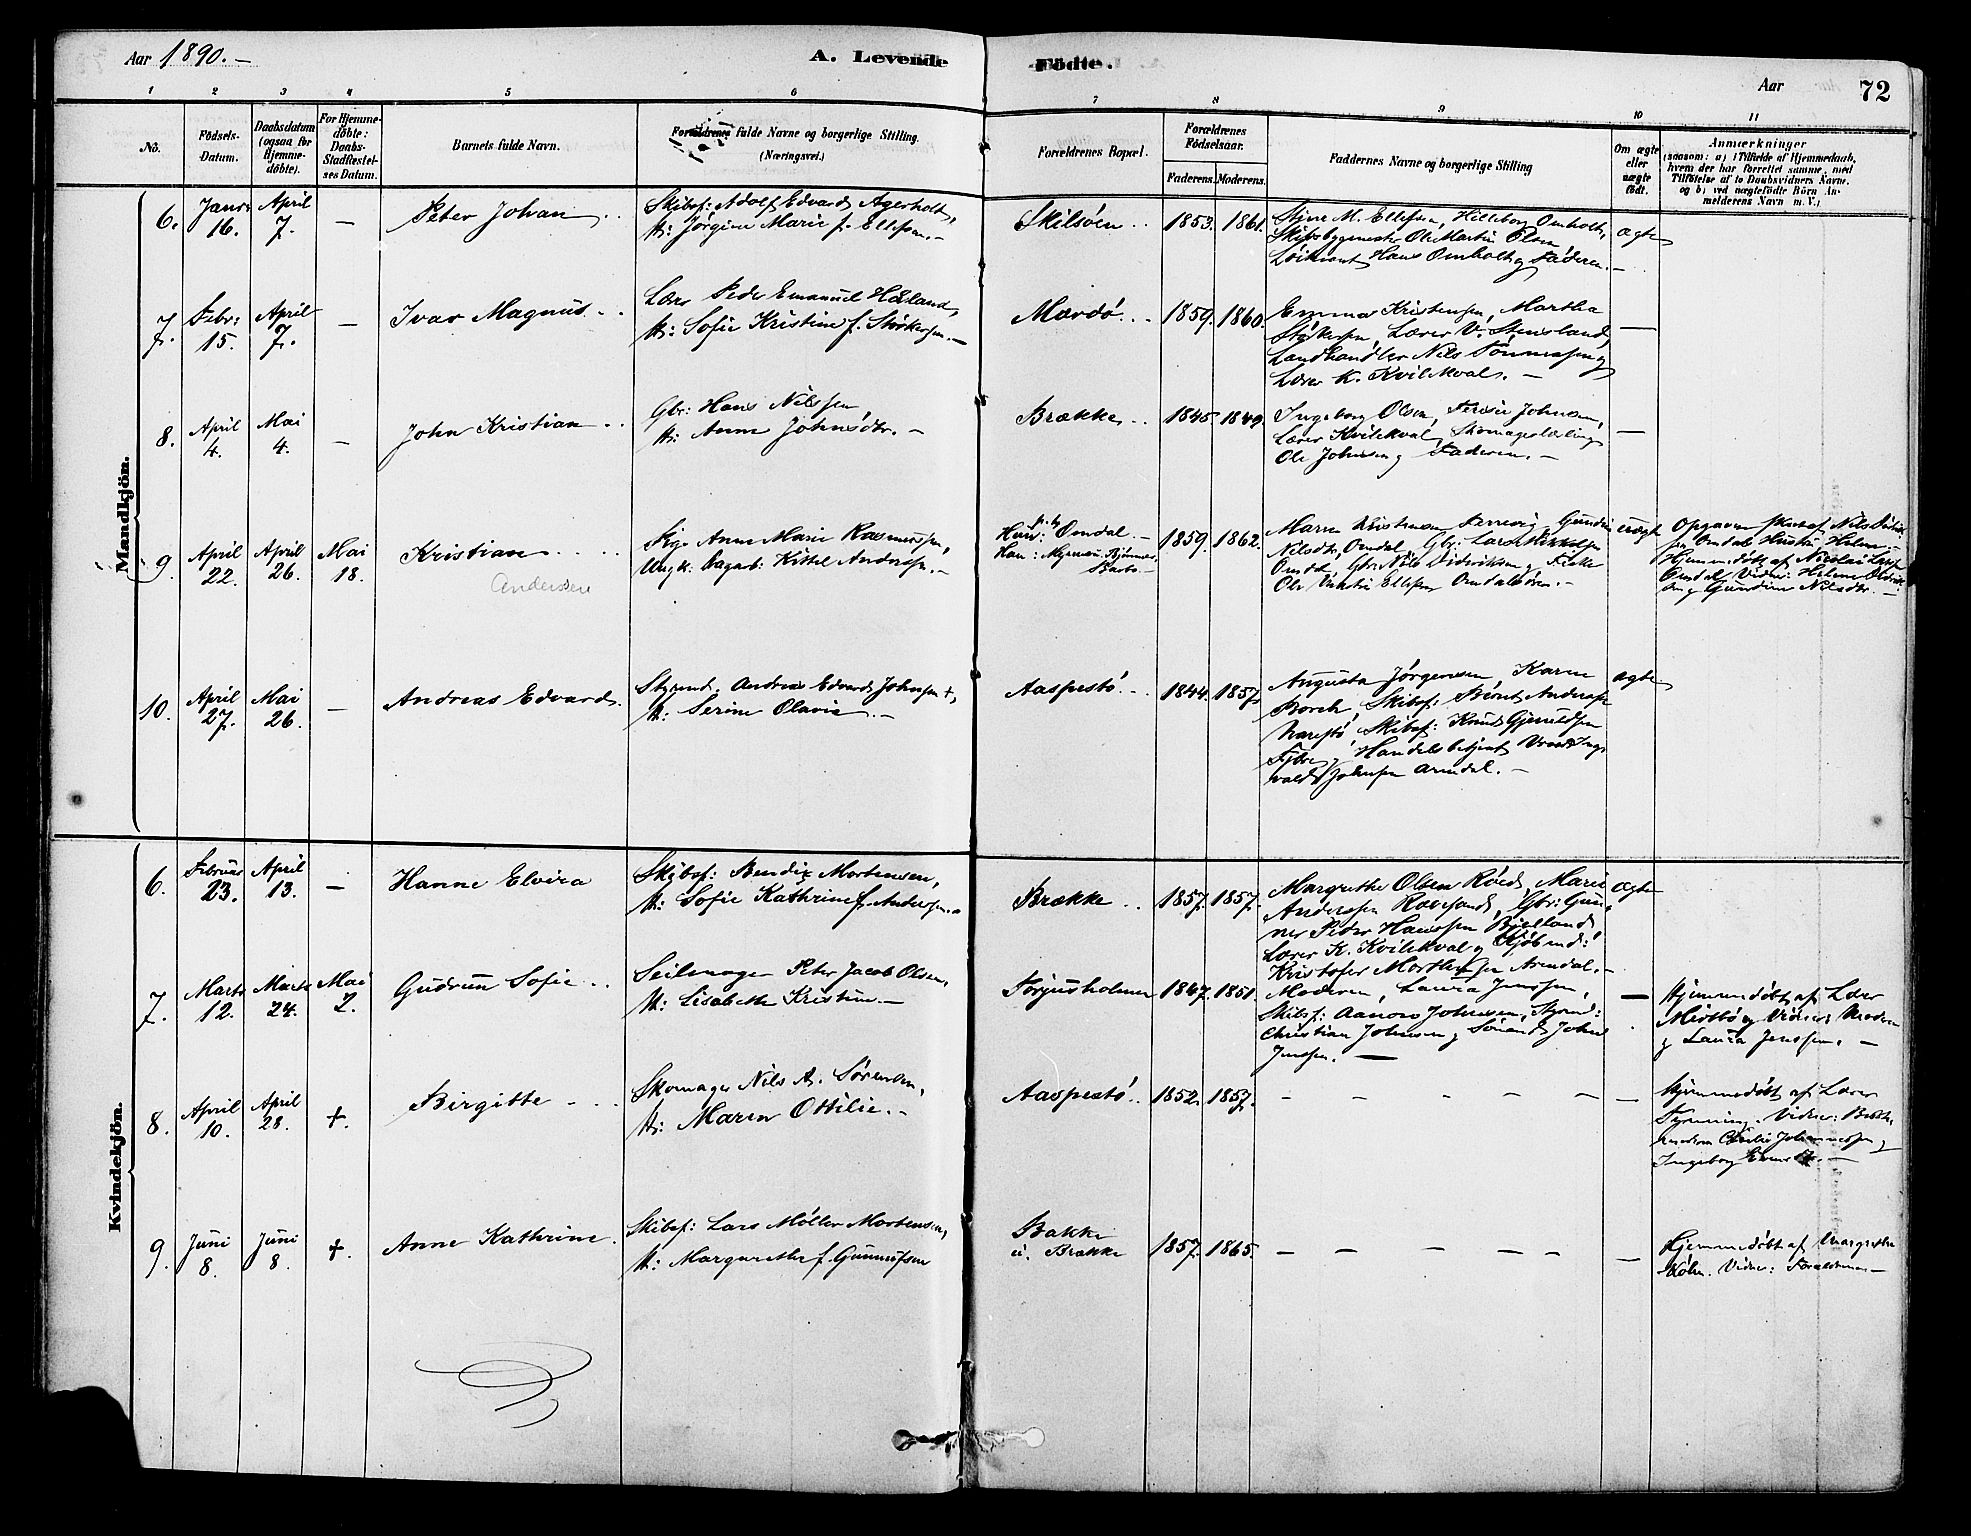 Aar 1890. —
A. Levende Födte.
Aar
72
1 2 3 4 5 6 7 8 9 10 11
No.
Födsels-Datum.
Daabsdatum (ogsaa for Hjemmedöbte).
For Hjemmedöbte: Daabs-Stadfæstelses Datum.
Barnets fulde Navn.
Forældrenes fulde Navne og borgerlige Stilling.
(Næringsvei.)
Forældrenes Bopæl.
Forældrenes Födselsaar.
Faderens. Moderens.
Faddernes Navne og borgerlige Stilling
Om ægte eller uægte födt.
Anmærkninger
(saasom: a) i Tilfælde af Hjemmedaab, hvem der har forrettet samme, med Tilföielse af to Daabsvidners Navne, og b) ved uægtefödte Börn Anmelderens Navn m. V.)
Mandkjön.
6. Janr: 16. April 7. — Peter Johan
Skibsf: Adolf Edvard Agerholt,
H: Jørgine Marie f. Ellefsen. —
Skilsöen 1853. 1861.
Stine M. Ellefsen, Hilleborg Omholt,
Skibsbygmester Ole Martin Olsen
Hans Omholt og Faderen. —
ægte
7. Febr: 15. April 7. — Ivar Magnus
Lærer Peder Emanuel Håland,
H: Sofie Kristine f. Størkersen. —
Mærdö 1859. 1860.
Emma Kristensen, Martha
Størkersen, Lærer V. Stensland,
Landhandler Nils Tönnessen og
Lærer K. Kvilekval. —
—
8. April 4. Mai 4. — John Kristian
Gbr: Hans Nilssen
H: Anne Johnsdtr. —
Brække 1845. 1849.
Ingeborg Olsen, Johnsen,
Lærer Kvilekval, Skomagerlærling
Ole Johnsen og Faderen. —
—
9. April 22. April 26. Mai 18. Kristian
Andersen
Pige Anne Marie Rasmussen,
Ungk. Dagarb: Kittel Anderssen. —
Hun: Omdal. —
Han: Bjønnes, Barbo —
1859. 1862.
Maren Kristensen Gundine
Nilsdtr, Omdal, Gbr: Lars Mikkelsen
Omdal, Gbr: Nils Didriksen og Fisker
Ole Ellefsen Omdalsören. —
uægte
Opgaven
Omdals Hustru Helene —
Hjemmedöbt af Nicolai Larsen
Omdal, Vidner: Helene
og Gundine Nilsdtr. —
10. April 27. Mai 26. — Andreas Edvard.
Styrmd. Andreas Edvard Johnsen +,
H: Serine Olavia. —
Aaspestö. 1844. 1857.
Augusta Jørgensen, Karen
Borch, Skibsf: Andersen
Narestö, Skibsf: Knud Gjeruldsen
Handelsbetjent Ing-
vald Johnsen Arendal. —
ægte
Kvindekjön.
6. Februar 23. April 13. — Hanne Elvira
Skibsf: Bendix Mortensen,
H: Sofie Kathrine f. Anderssen.
Brække 1857. 1857.
Margrethe Olsen Røed, Marie
Anderssen Revesand, Gbr: Gun-
ner Peder Hanssen Bjelland,
Lærer K. Kvilekval og Kjöbmd:
Kristofer Mortensen Arendal. —
ægte
7. Marts 12. Marts 24. Mai 2. Gudrun Sofie
Seilmager Peter Jacob Olsen,
H: Lisabeth Kristine —
Torjusholmen 1847. 1851.
Moderen, Laura Jenssen,
Skibsf: Aanon Johnsen, Styrmd:
Christian Johnsen og John
Jenssen. —
—
Hjemmedöbt af Lærer
Midtbö og Vidner: Moderen
og Laura Jenssen. —
8. April 10. April 28. +. Birgitte
Skomager Nils A. Sørensen,
H: Maren Ottilie. —
Aaspestö. 1852. 1857.
— — — — — —
Hjemmedöbt af Lærer
Vidner: Bedste-
moderen Johannessen og
Ingeborg
9. Juni 8. Juni 8. +. Anne Kathrine.
Skibsf: Lars Møller Mortensen,
H: Margarethe f. Gunnufsen
Bakke
u. Brække 1857. 1865.
— — — — — — —
Hjemmedöbt af Margrethe
Vidner: Forældrene —